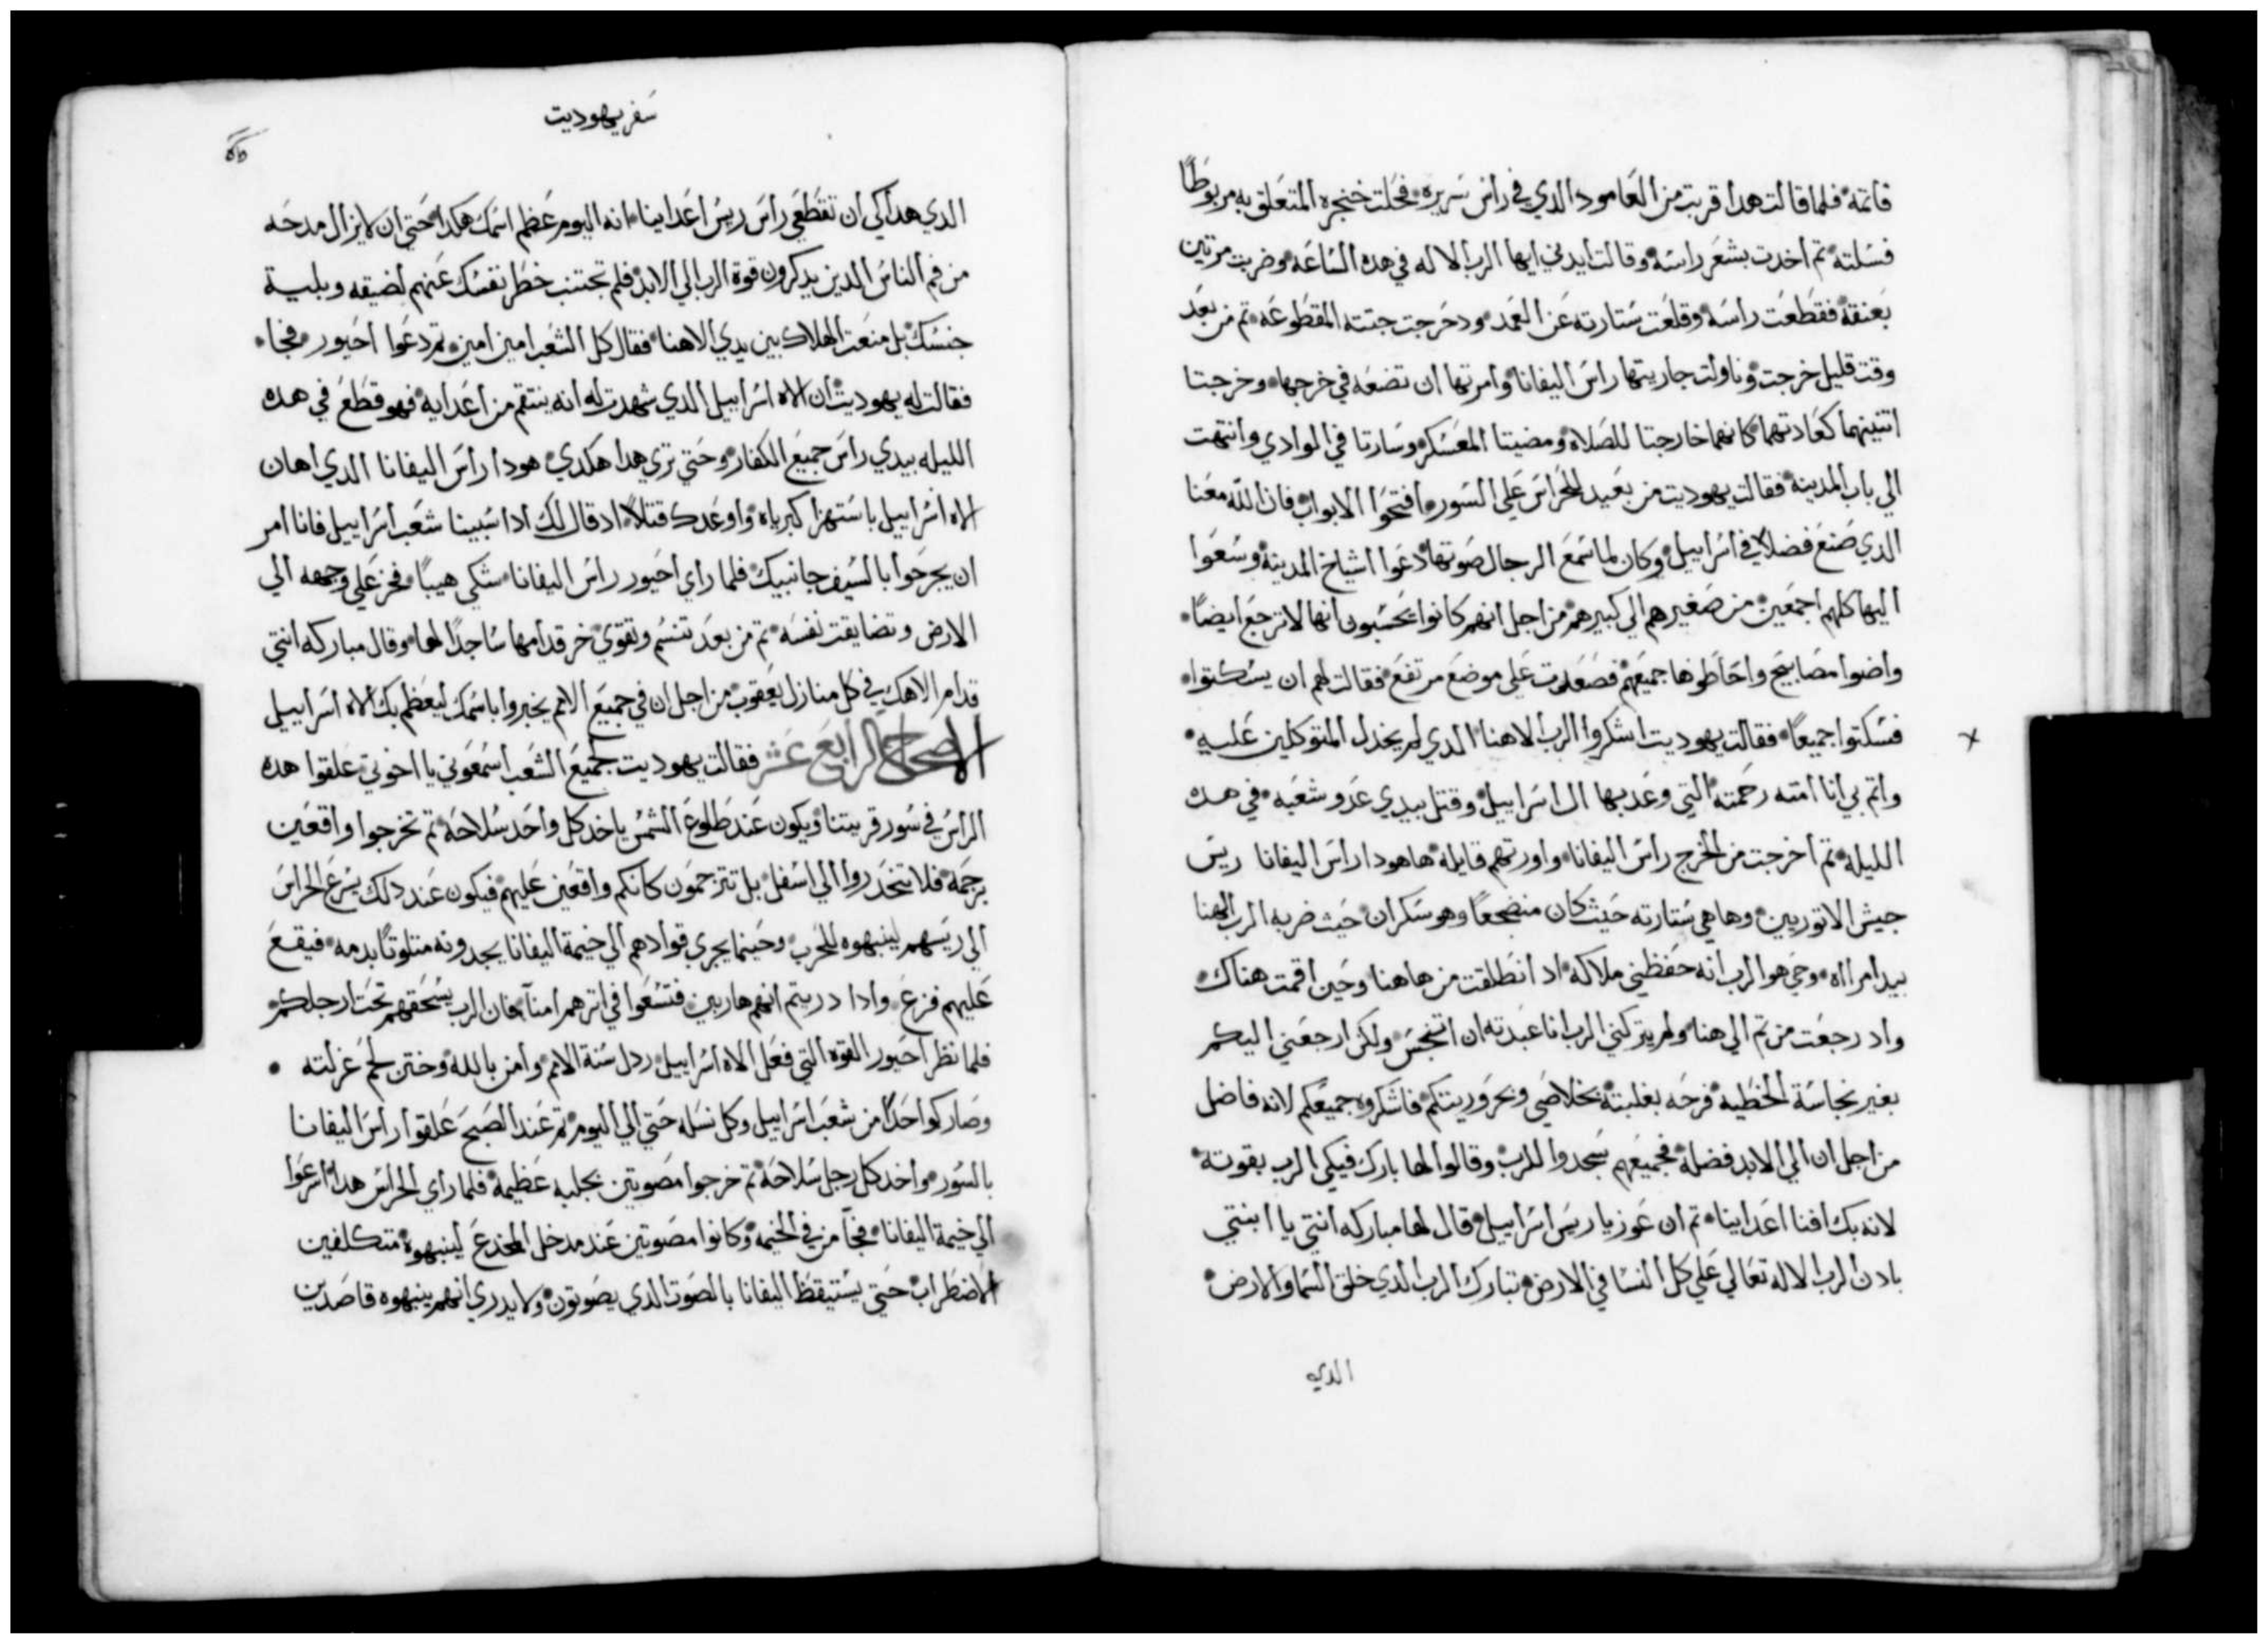 قاتمة فلما قالت هدا قربت من العامود الدي في راس سريره فحلت خنجره المتعلق به مربوطًا
فسلته تم اخدت بشعر راسه وقالت ايدني ايها الرب الاله في هده الساعه وضربت مرتين
بعنقة فقطعت راسه وقلعت ستارته عن العمد ودحرجت جتته المقطوعه تم من بعد
وقت قليل خرجت وناولت جاريتها راس اليفانا وامرتها ان تضعه في خرجها وخرجتا
اتنينهما كعادتهما كانهما خارجتا للصلاه ومضيتا المعسكر وسارتا في الوادي وانتهت
الي باب المدينة فقالت يهوديت من بعيد للحراس علي السور افتحوا الابواب فان الله معنا
الدي صنع فضلا في اسراييل وكان لما سمع الرجال صوتها دعوا اشياخ المدينة وسعوا
اليها كلهم اجمعين من صغيرهم الي كبيرهم من اجل انهم كانوا يحسبون انها لا ترجع ايضًا
واضوا مصابيح واحاطوها جميعهم فصعدت علي موضع مرتفع فقالت لهم ان يسكتوا
فسكتوا جميعًا فقالت يهوديت اشكروا الرب الاهنا الدي لم يخدل المتوكلين عليه
واتم بي انا امته رحمته التي وعد بها ال اسراييل وقتل بيدي عدو شعبه في هده
الليله تم اخرجت من الخرج راس اليفانا واورتهم قايلة ها هودا راس اليفانا ريس
جيش الاتوريين وها هي ستارته حيث كان منضجعًا وهو سكران حيث ضربه الرب الهنا
بيد امراه وحي هو الرب انه حفظني ملاكه اد انطلقت من هاهنا وحين اقمت هناك
واد رجعت من تم الي هنا ولم يتركني الرب انا عبدته ان اتنجس ولكن ارجعني اليكم
بغير نجاسة الخطيه فرحه بغلبته بخلاصي وبحروريتكم فاشكروه جميعكم لانه فاضل
من اجل ان الي الابد فضله فجميعهم سجدوا للرب وقالوا لها بارك فيكي الرب بقوته
لانه بك افنا اعداينا تم ان عوزيا ريس اسراييل قال لها مباركه انتي يا ابنتي
بادن الرب الاله تعالي علي كل النسا في الارض تبارك الرب الدي خلق السما والارض
الدي
سفر يهوديت
الدي هداكي ان تقطعي راس ريس اعداينا انه اليوم عظم اسمك هكدا حتي ان لا يزال مدحه
من فم الناس الدين يدكرون قوة الرب الي الابد فلم تجتنب خطر نفسك عنهم لضيقه وبلية
جنسك بل منعت الهلاك بين يدي الاهنا فقال كل الشعب امين امين تم دعوا احيور فجاء
فقالت له يهوديت ان الاه اسراييل الدي شهدت له انه ينتقم من اعدايه فهو قطع في هده
الليله بيدي راس جميع الكفار وحتي تري هدا هكدي هودا راس اليفانا الدي اهان
الاه اسراييل باستهزا كبرياه واوعدك قتلاً اد قال لك ادا سبينا شعب اسراييل فانا امر
ان يجرحوا بالسيف جانبيك فلما راي احيور راس اليفانا شكي هيبًا فخر علي وجهه الي
الارض وتضايقت نفسه تم من بعد تنسم وتقوي خر قدامها ساجدًا لها وقال مباركه انتي
قدام الاهك في كل منازل يعقوب من اجل ان في جميع الامم يخبروا باسمك ليعظم بك الاه اسراييل
الاصحاح الرابع عشر فقالت يهوديت لجميع الشعب اسمعوني يا اخوتي علقوا هده
الراس في سور قريتنا ويكون عند طلوع الشمس ياخد كل واحد سلاحه تم تخرجوا واقعين
برجمة فلا تنحدروا الي اسفل بل تترجمون كانكم واقعين عليهم فيكون عند دلك يسرع الحراس
الي ريسهم لينبهوه للحرب وحينما يجري قوادهم الي خيمة اليفانا يجدونه متلوتًا بدمه فيقع
عليهم فزع وادا دريتم انهم هاربين فتسعوا في اترهم امنآ فان الرب يسحقهم تحت ارجلكم
فلما نظر احيور القوه التي فعل الاه اسراييل ردل سنة الامم وامن بالله وختن لحم غرلته
وصار كواحدًا من شعب اسراييل وكل نسله حتي الي اليوم تم عند الصبح علقوا راس اليفانا
بالسور واخد كل رجل سلاحه تم خرجوا مصوتين بجلبه عظيمة فلما راي الحراس هدا اسرعوا
الي خيمة اليفانا فجآ من في الخيمه وكانوا مصوتين عند مدخل المخدع لينبهوه متكلفين
الاضطراب حتي يستيقظ اليفانا بالصوت الدي يصوتون ولا يدري انهم ينبهوه قاصدين